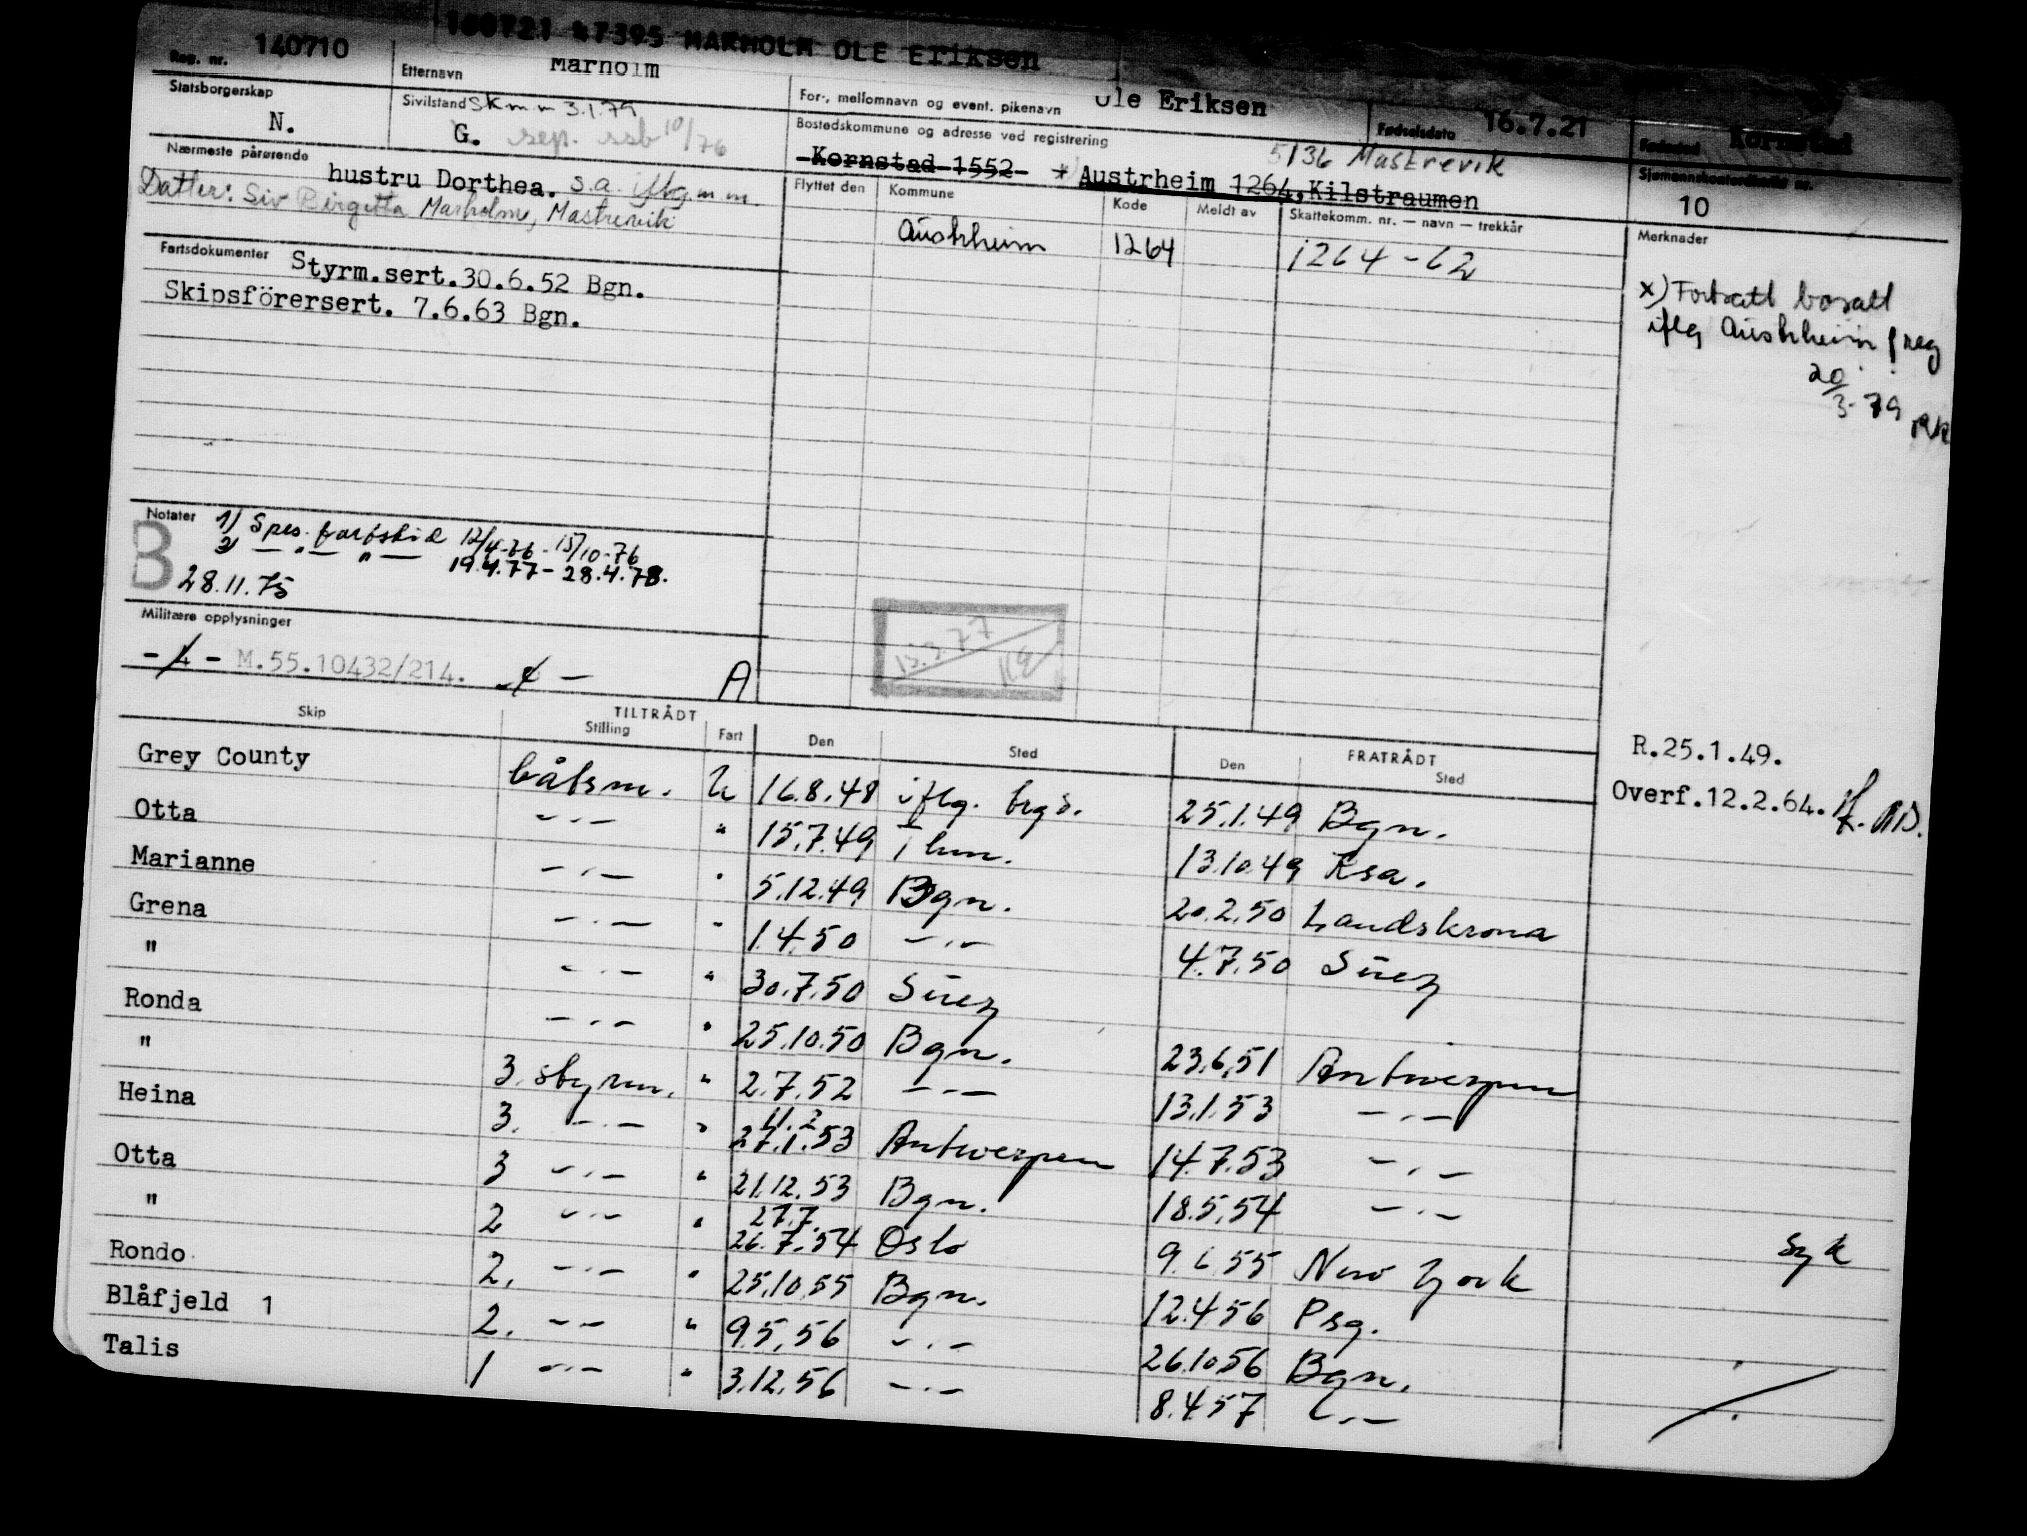 160721 47395 MARHOLM OLE Eriksen
Reg. nr. 140710
Etternavn Marholm
For-, mellomnavn og event. pikenavn Ole Eriksen
Fødselsdato 16.7.21
Fødested Kornstad
Statsborgerskap N.
Sivilstand Skm m 3.1.79
G. sep. ssb 10/76
Bostedskommune og adresse ved registrering 5136 Mastrevik
Kornstad 1552 Austrheim 1264, Kilstraumen
Sjømannskontordistrikt nr.
10
Nærmeste pårørende
hustru Dorthea. s.a. iflg. m m.
Datter: Siv Birgitta Marholm, Mastrevik
Flyttet den Kommune Kode Meldt av Skattekomm. nr. — navn — trekkår Merknader
Austrheim 1264 1264-62
Fartsdokumenter Styrm.sert.30.6.52 Bgn.
Skipsförersert. 7.6.63 Bgn.
x) Fortsatt bosatt
iflg Austrheim f reg
20/3-79
Notater 1) Spes. fartstid 12/4-76 - 15/10-76
2) — " — " — 19.4.77 - 28.4.78.
B 28.11.75
Militære opplysninger
M.55.10432/214.
A
15.3.77
R.25.1.49.
Overf.12.2.64.
Skip TILTRÅDT FRATRÅDT
Stilling Fart Den Sted Den Sted
Grey County båtsm. U 16.8.48 iflg. brgs. 25.1.49 Bgn.
Otta —"— " 15.7.49 Thm. 13.10.49 Ksa.
Marianne —"— " 5.12.49 Bgn. 20.2.50 Landskrona
Grena —"— " 1.4.50 —"— 4.7.50 Suez
" —"— " 30.7.50 Suez
Ronda —"— " 25.10.50 Bgn. 23.6.51 Antwerpen
" 3. styrm. " 2.7.52 —"— 13.1.53 —"—
Heina 3. —"— " 11.2 27.1.53 Antwerpen 14.7.53 —"—
Otta 3 —"— " 21.12.53 Bgn. 18.5.54 —"—
" 2 —"— " 27.7. 26.7.54 Oslo 9.6.55 New York syk
Rondo 2. —"— " 25.10.55 Bgn. 12.4.56 Psg.
Blåfjeld 1 2. —"— " 9.5.56 —"— 26.10.56 Bgn.
Talis 1 —"— " 3.12.56 —"— 8.4.57 —"—